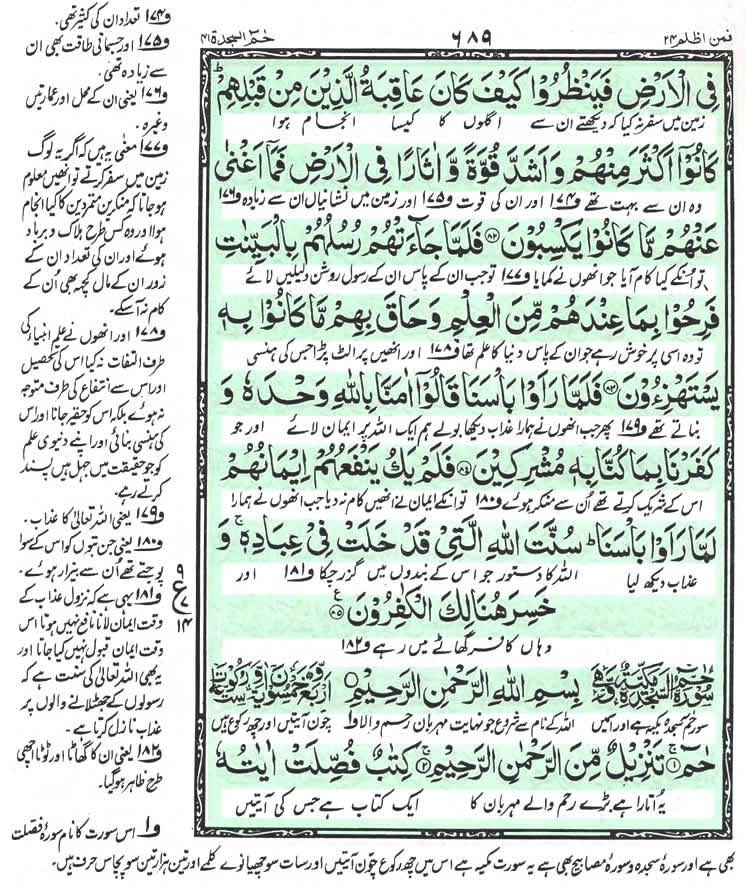 فمن اظلم ۲۴
۶۸۹
حٰم السجدة ۴۱
فِي الْاَرْضِ فَيَنْظُرُوْا كَيْفَ كَانَ عَاقِبَةُ الَّذِيْنَ مِنْ قَبْلِهِمْ ؕ
زمین میں سفر نہ کیا کہ دیکھتے ان سے اگلوں کا کیسا انجام ہوا
كَانُوْۤا اَكْثَرَ مِنْهُمْ وَ اَشَدَّ قُوَّةً وَّ اٰثَارًا فِي الْاَرْضِ فَمَاۤ اَغْنٰى
وہ ان سے بہت تھے و۱۷۴ اور ان کی قوت و۱۷۵ اور زمین میں نشانیاں ان سے زیادہ و۱۷۶
عَنْهُمْ مَّا كَانُوْا يَكْسِبُوْنَ ﴿۸۲﴾ فَلَمَّا جَآءَتْهُمْ رُسُلُهُمْ بِالْبَيِّنٰتِ
تو انکے کیا کام آیا جو انھوں نے کمایا و۱۷۷ تو جب ان کے پاس ان کے رسول روشن دلیلیں لائے
فَرِحُوْا بِمَا عِنْدَهُمْ مِّنَ الْعِلْمِ وَ حَاقَ بِهِمْ مَّا كَانُوْا بِهٖ
تو وہ اسی پر خوش رہے جو ان کے پاس دنیا کا علم تھا و۱۷۸ اور انھیں پر الٹ پڑا جس کی ہنسی
يَسْتَهْزِءُوْنَ ﴿۸۳﴾ فَلَمَّا رَاَوْا بَاْسَنَا قَالُوْۤا اٰمَنَّا بِاللّٰهِ وَحْدَهٗ وَ
بناتے تھے و۱۷۹ پھر جب انھوں نے ہمارا عذاب دیکھا بولے ہم ایک اللہ پر ایمان لائے اور جو
كَفَرْنَا بِمَا كُنَّا بِهٖ مُشْرِكِيْنَ ﴿۸۴﴾ فَلَمْ يَكُ يَنْفَعُهُمْ اِيْمَانُهُمْ
اس کے شریک کرتے تھے اُن سے منکر ہوئے و۱۸۰ تو انکے ایمان نے انھیں کام نہ دیا جب انھوں نے ہمارا
لَمَّا رَاَوْا بَاْسَنَا ؕ سُنَّتَ اللّٰهِ الَّتِيْ قَدْ خَلَتْ فِيْ عِبَادِهٖ ۚ وَ
عذاب دیکھ لیا اللہ کا دستور جو اس کے بندوں میں گزر چکا و۱۸۱ اور
خَسِرَ هُنَالِكَ الْكٰفِرُوْنَ ﴿۸۵﴾ ع
وہاں کافر گھاٹے میں رہے و۱۸۲
سُوْرَةُ حٰمٓ السَّجْدَةِ مَكِّيَّةٌ وَّهِيَ بِسْمِ اللّٰهِ الرَّحْمٰنِ الرَّحِيْمِ اَرْبَعٌ وَّخَمْسُوْنَ اٰيَةً وَّسِتُّ رُكُوْعَاتٍ
سورۂ حٰم سجدہ مکیہ ہے اور اسمیں اللہ کے نام سے شروع جو نہایت مہربان رحم والا و۱ چون آیتیں اور چھ رکوع ہیں
حٰمٓ ﴿۱﴾ تَنْزِيْلٌ مِّنَ الرَّحْمٰنِ الرَّحِيْمِ ﴿۲﴾ كِتٰبٌ فُصِّلَتْ اٰيٰتُهٗ
یہ اُتارا ہے بڑے رحم والے مہربان کا ایک کتاب ہے جس کی آیتیں
و۱۷۴ تعداد ان کی کثیر تھی۔
و۱۷۵ اور جسمانی طاقت بھی ان
سے زیادہ تھی۔
و۱۷۶ یعنی ان کے محل اور عمارتیں
وغیرہ۔
و۱۷۷ معنی یہ ہیں کہ اگر یہ لوگ
زمین میں سفر کرتے تو انھیں معلوم
ہو جاتا کہ منکرین متمردین کا کیا انجام
ہوا اور وہ کس طرح ہلاک و برباد
ہوئے اور ان کی تعداد ان کے
زور ان کے مال کچھ بھی اُن کے
کام نہ آسکے۔
و۱۷۸ اور انھوں نے علم انبیاء کی
طرف التفات نہ کیا اس کی تحصیل
اور اس سے انتفاع کی طرف متوجہ
نہ ہوئے بلکہ اس کو حقیر جانا اور اس
کی ہنسی بنائی اور اپنے دنیوی علم
کو جو حقیقت میں جہل ہیں پسند
کرتے رہے۔
و۱۷۹ یعنی اللہ تعالیٰ کا عذاب۔
و۱۸۰ یعنی جن بتوں کو اس کے سوا
پوجتے تھے اُن سے بیزار ہوئے۔
و۱۸۱ یہی ہے کہ نزول عذاب کے
وقت ایمان لانا نافع نہیں ہوتا اس
وقت ایمان قبول نہیں کیا جاتا اور
یہ بھی اللہ تعالیٰ کی سنت ہے کہ
رسولوں کے جھٹلانے والوں پر
عذاب نازل کرتا ہے۔
و۱۸۲ یعنی ان کا گھاٹا اور ٹوٹا اچھی
طرح ظاہر ہو گیا۔
۹
ع
۷
۱۴
و۱ اس سورت کا نام سورۂ فصلت
بھی ہے اور سورۂ سجدہ و سورۂ مصابیح بھی ہے یہ سورت مکیہ ہے اس میں چھ رکوع چون آیتیں اور سات سو چھیانوے کلمے اور تین ہزار تین سو پچاس حرف ہیں۔